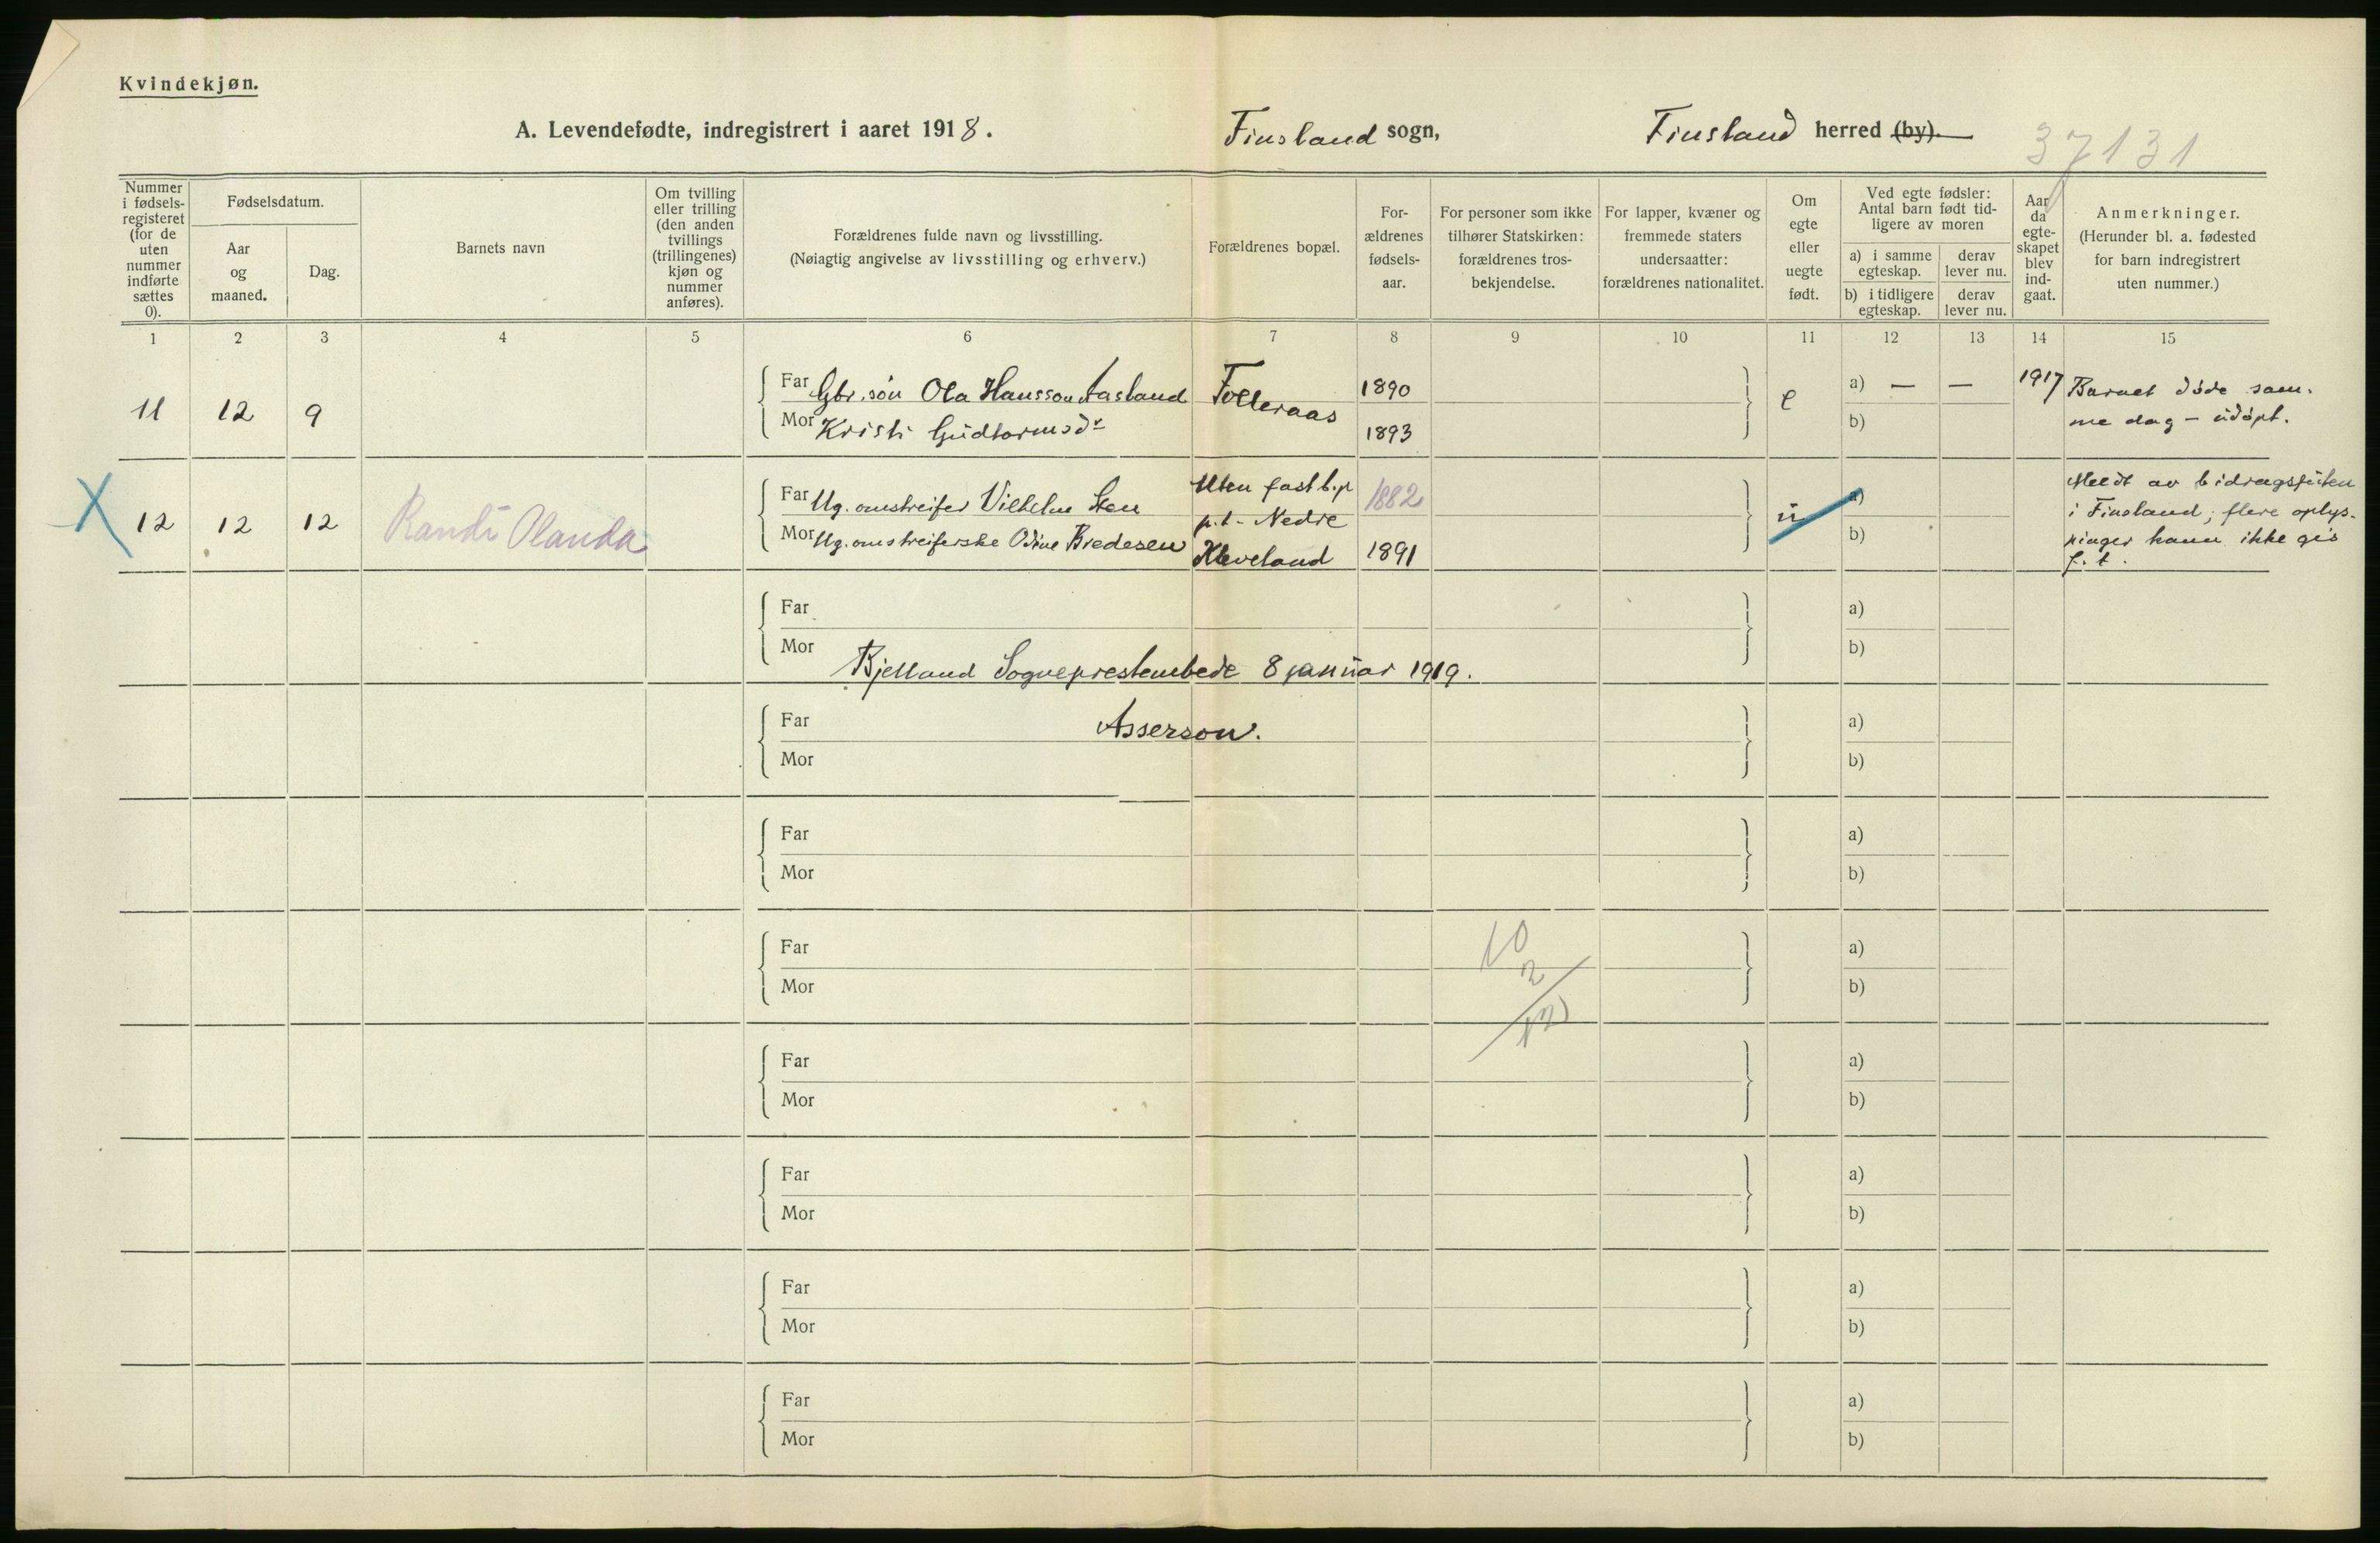 Kvindekjøn.
A. Levendefødte, indregistrert i aaret 1918. Finsland sogn, Finsland herred (by).
37131
Nummer i fødsels-registeret (for de uten nummer indførte sættes 0).
Fødselsdatum.
Aar og maaned.
Dag.
Barnets navn
Om tvilling eller trilling (den anden tvillings (trillingenes) kjøn og nummer anføres).
Forældrenes fulde navn og livsstilling.
(Nøiagtig angivelse av livsstilling og erhverv.)
Forældrenes bopæl.
For-ældrenes fødsels-aar.
For personer som ikke tilhører Statskirken: forældrenes tros-bekjendelse.
For lapper, kvæner og fremmede staters undersaatter: forældrenes nationalitet.
Om egte eller uegte født.
Ved egte fødsler: Antal barn født tid-ligere av moren
a) i samme egteskap.
derav lever nu.
b) i tidligere egteskap.
derav lever nu.
Aar da egte-skapet blev ind-gaat.
Anmerkninger.
(Herunder bl. a. fødested for barn indregistrert uten nummer.)
1 2 3 4 5 6 7 8 9 10 11 12 13 14 15
11 12 9
Far Gbr.søn Ola Hansson Aasland
Mor Kristi Gudtormsdr
Folleraas
1890
1893
e
a) — —
b)
1917
Barnet døde sam-
me dag – udøpt.
X 12 12 12 Randi Olanda
Far Ug. omstreifer Vilhelm Sten
Mor Ug. omstreiferske Odine Bredesen
Uten fast b.p
p.t - Nedre
Kleveland
1882
1891
u
a)
b)
Meldt av bidragsfuten
i Finsland; flere oplys-
ninger kann ikke gis
f. t.
Far a)
Mor b)
Bjelland Sogneprestembede 8 januar 1919.
Far a)
Asserson.
Mor b)
Far a)
Mor b)
Far a)
Mor b)
10
2
12
Far a)
Mor b)
Far a)
Mor b)
Far a)
Mor b)
Far a)
Mor b)